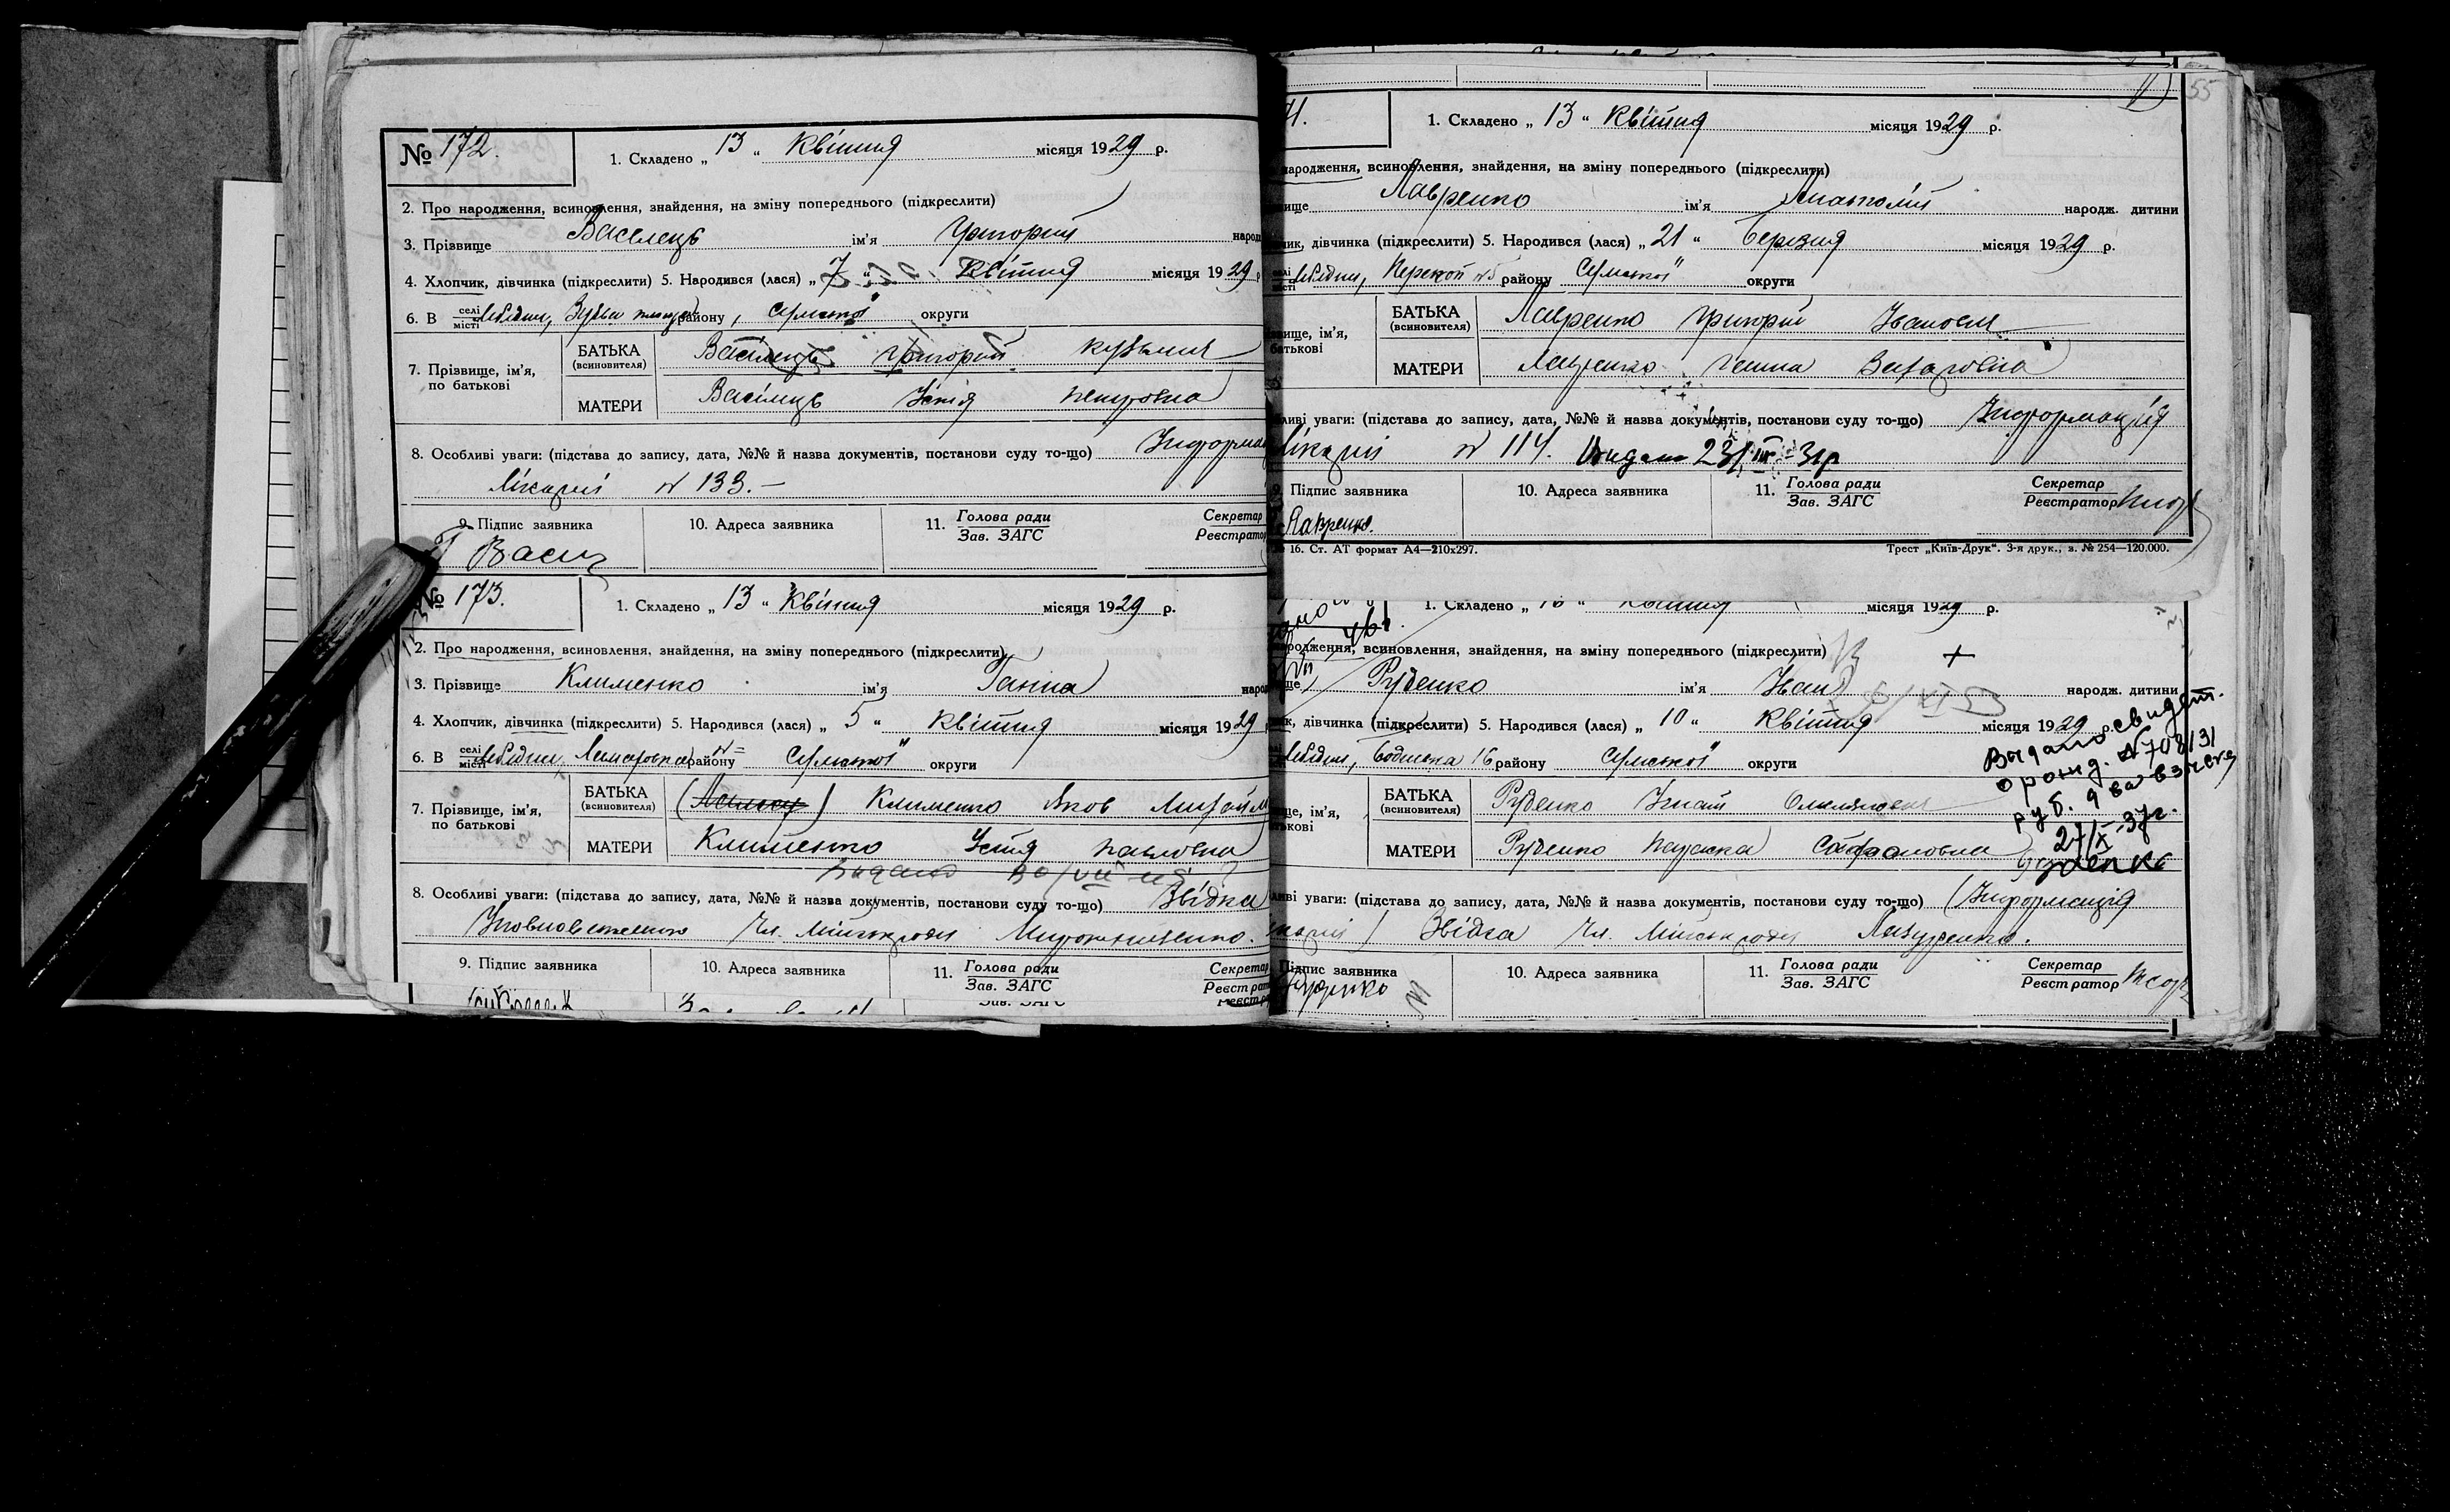 № 172.
1. Складено „ 13 “ Квітня місяця 1929 р.
2. Про народження, всиновлення, знайдення, на зміну попереднього (підкреслити)
3. Прізвище Василець ім'я Григорий народ
4. Хлопчик, дівчинка (підкреслити) 5. Народився (лася) „ 7 “ Квітня місяця 1929 р
6. В селі місті Лебедин, району, Сумської округи
7. Прізвище, ім'я, по батькові
БАТЬКА (всиновителя) Василець Григорий Кузьмич
МАТЕРИ Василець Устія Петровна
8. Особливі уваги: (підстава до запису, дата, №№ й назва документів, постанови суду то-що) Информа
Лікарні № 133.–
9. Підпис заявника
10. Адреса заявника
11. Голова ради
Зав. ЗАГС
Секретар
Реєстратор
Г Васи
№ 173.
1. Складено „ 13 “ Квітня місяця 1929 р.
2. Про народження, всиновлення, знайдення, на зміну попереднього (підкреслити)
3. Прізвище Клименко ім'я Ганна народ
4. Хлопчик, дівчинка (підкреслити) 5. Народився (лася) „ 5 “ Квітня місяця 1929 р
6. В селі місті Лебедин, району Сумської округи
7. Прізвище, ім'я, по батькові
БАТЬКА (всиновителя) Клименко Яков
МАТЕРИ Клименко Устя Павловна
8. Особливі уваги: (підстава до запису, дата, №№ й назва документів, постанови суду то-що) Звідка
Уповноваженого Чл. Міськради Мирошниченко.
9. Підпис заявника
10. Адреса заявника
11. Голова ради
Зав. ЗАГС
Секретар
Реєстратор
55
1. Складено „ 13 “ Квітня місяця 1929 р.
народження, всиновлення, знайдення, на зміну попереднього (підкреслити)
вище Лавренко ім'я Анатолій народж. дитини
чик, дівчинка (підкреслити) 5. Народився (лася) „ 21 “ Березня місяця 1929 р.
селі місті Лебедин, Перекоп №5 району Сумської округи
вище, ім'я, батькові
БАТЬКА (всиновителя) Лавренко Григорий Іванович
МАТЕРИ Лавренко Ганна Захаровна
ливі уваги: (підстава до запису, дата, №№ й назва документів, постанови суду то-що) Информация
Лікарні № 114. Видано 23/III–31р
9. Підпис заявника
10. Адреса заявника
11. Голова ради
Зав. ЗАГС
Секретар
Реєстратор
Лавренко.
16. Ст. АТ формат А4—210х297.
Трест „Київ-Друк“. 3-я друк., з. № 254—120.000.
1. Складено „ 16 “ Квітня місяця 1929 р.
родження, всиновлення, знайдення, на зміну попереднього (підкреслити)
ще Руденко ім'я Іван народж. дитини
к, дівчинка (підкреслити) 5. Народився (лася) „ 10 “ Квітня місяця 1929 р.
Лебедин, 16 району Сумської округи
ще, ім'я, атькові
БАТЬКА (всиновителя) Руденко Игнат Омелянович
МАТЕРИ Руденко Параска
Выдано свидет.
о рожд. №708131
руб. 9 за взыск
27/X–37г.
ливі уваги: (підстава до запису, дата, №№ й назва документів, постанови суду то-що) (Информация
карні) Звідка Чл. Міськради Лазуренко.
Підпис заявника
10. Адреса заявника
11. Голова ради
Зав. ЗАГС
Секретар
Реєстратор
Руденко